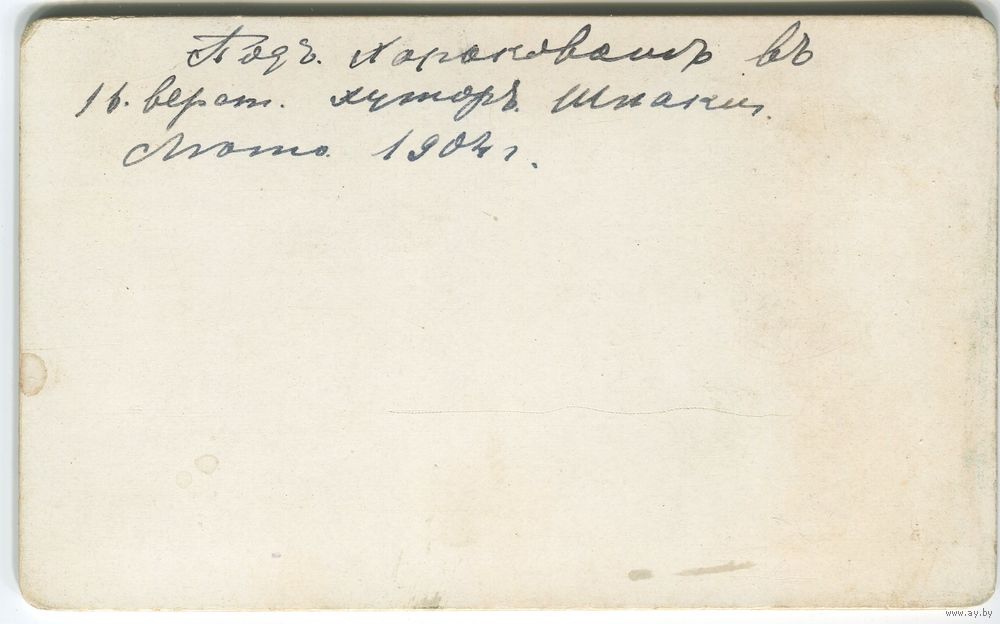 Подъ. Хорьковымъ въ
16. верст. хуторъ. Шпаки.
Лѣто 1904 г.
www.ay.by